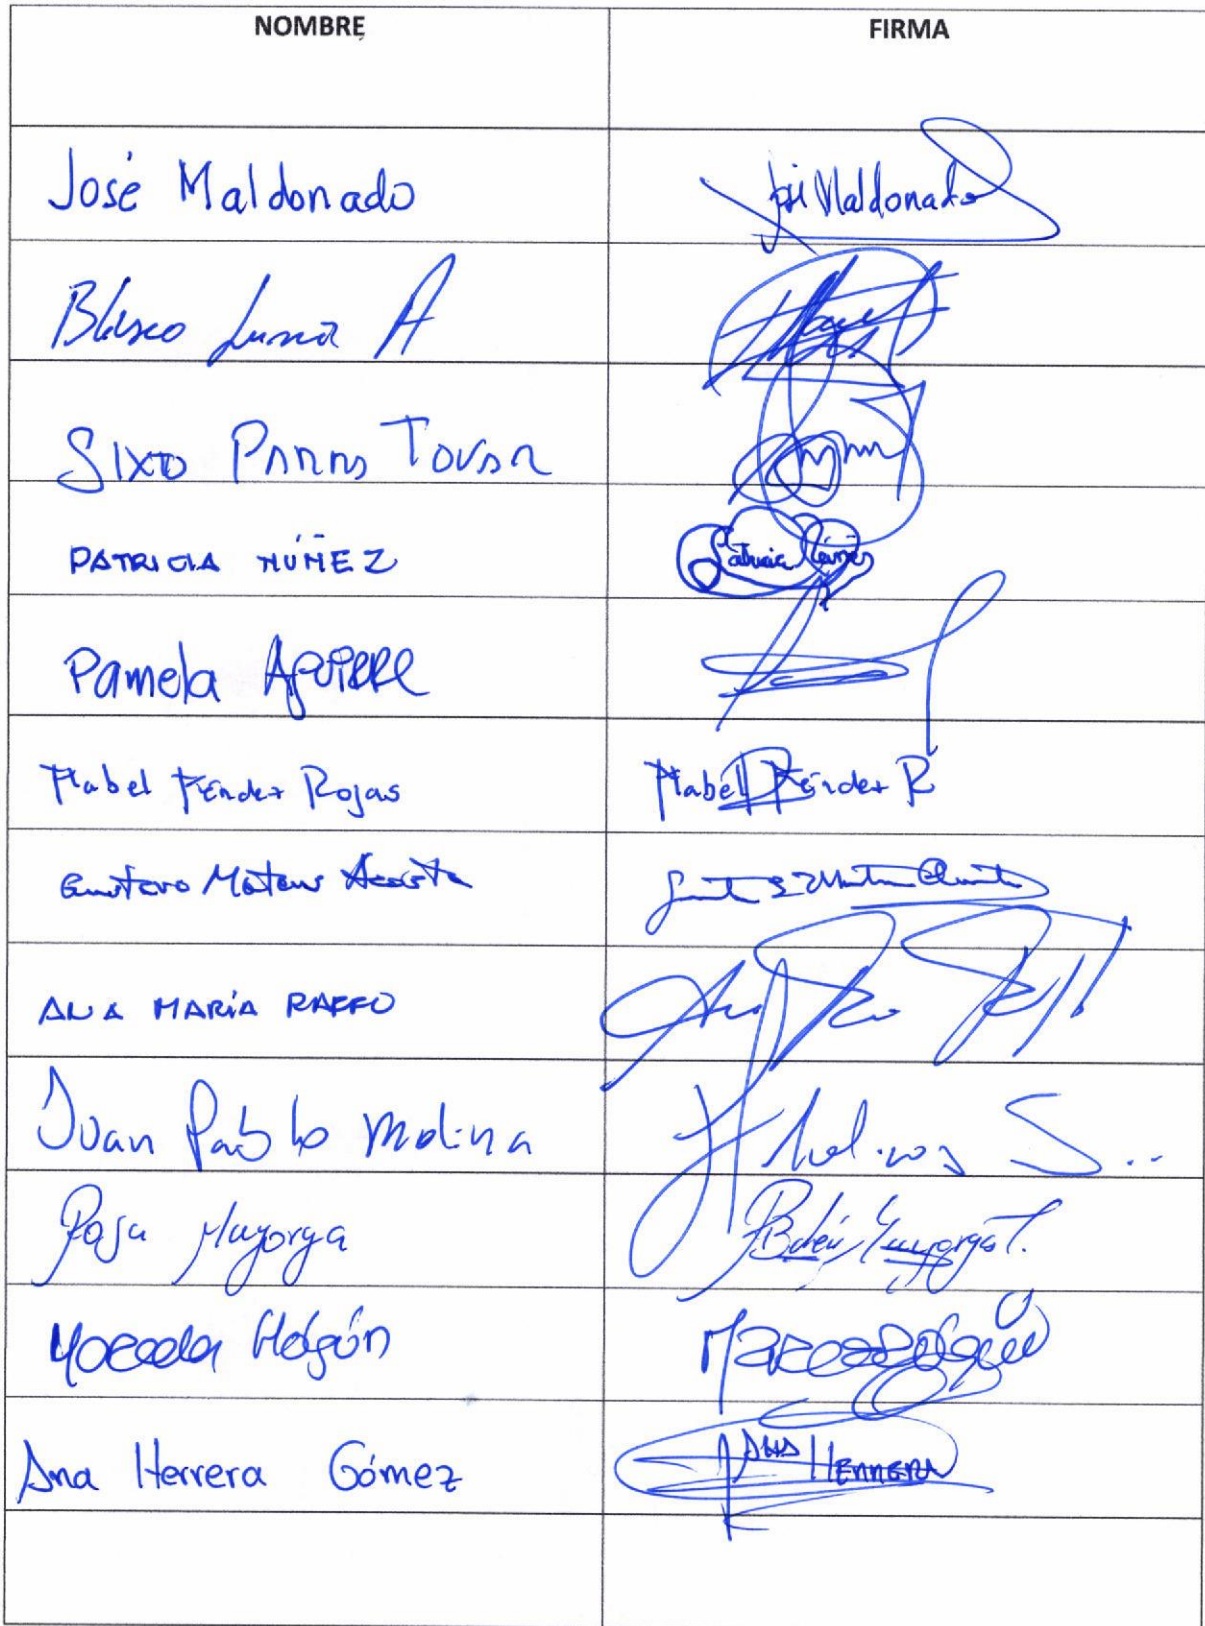 NOMBRE FIRMA
José Maldonado José Maldonado
Blasco Luna A
Sixto Parra Tovar
PATRICIA NÚÑEZ Patricia Núñez
Pamela Aguirre
Mabel Méndez Rojas Mabel Méndez R
Gustavo Mateus Acosta
ANA MARÍA RAFFO
Juan Pablo Molina
Rosa Mayorga Belén Mayorga T.
Holgún
Ana Herrera Gómez ANA HERRERA